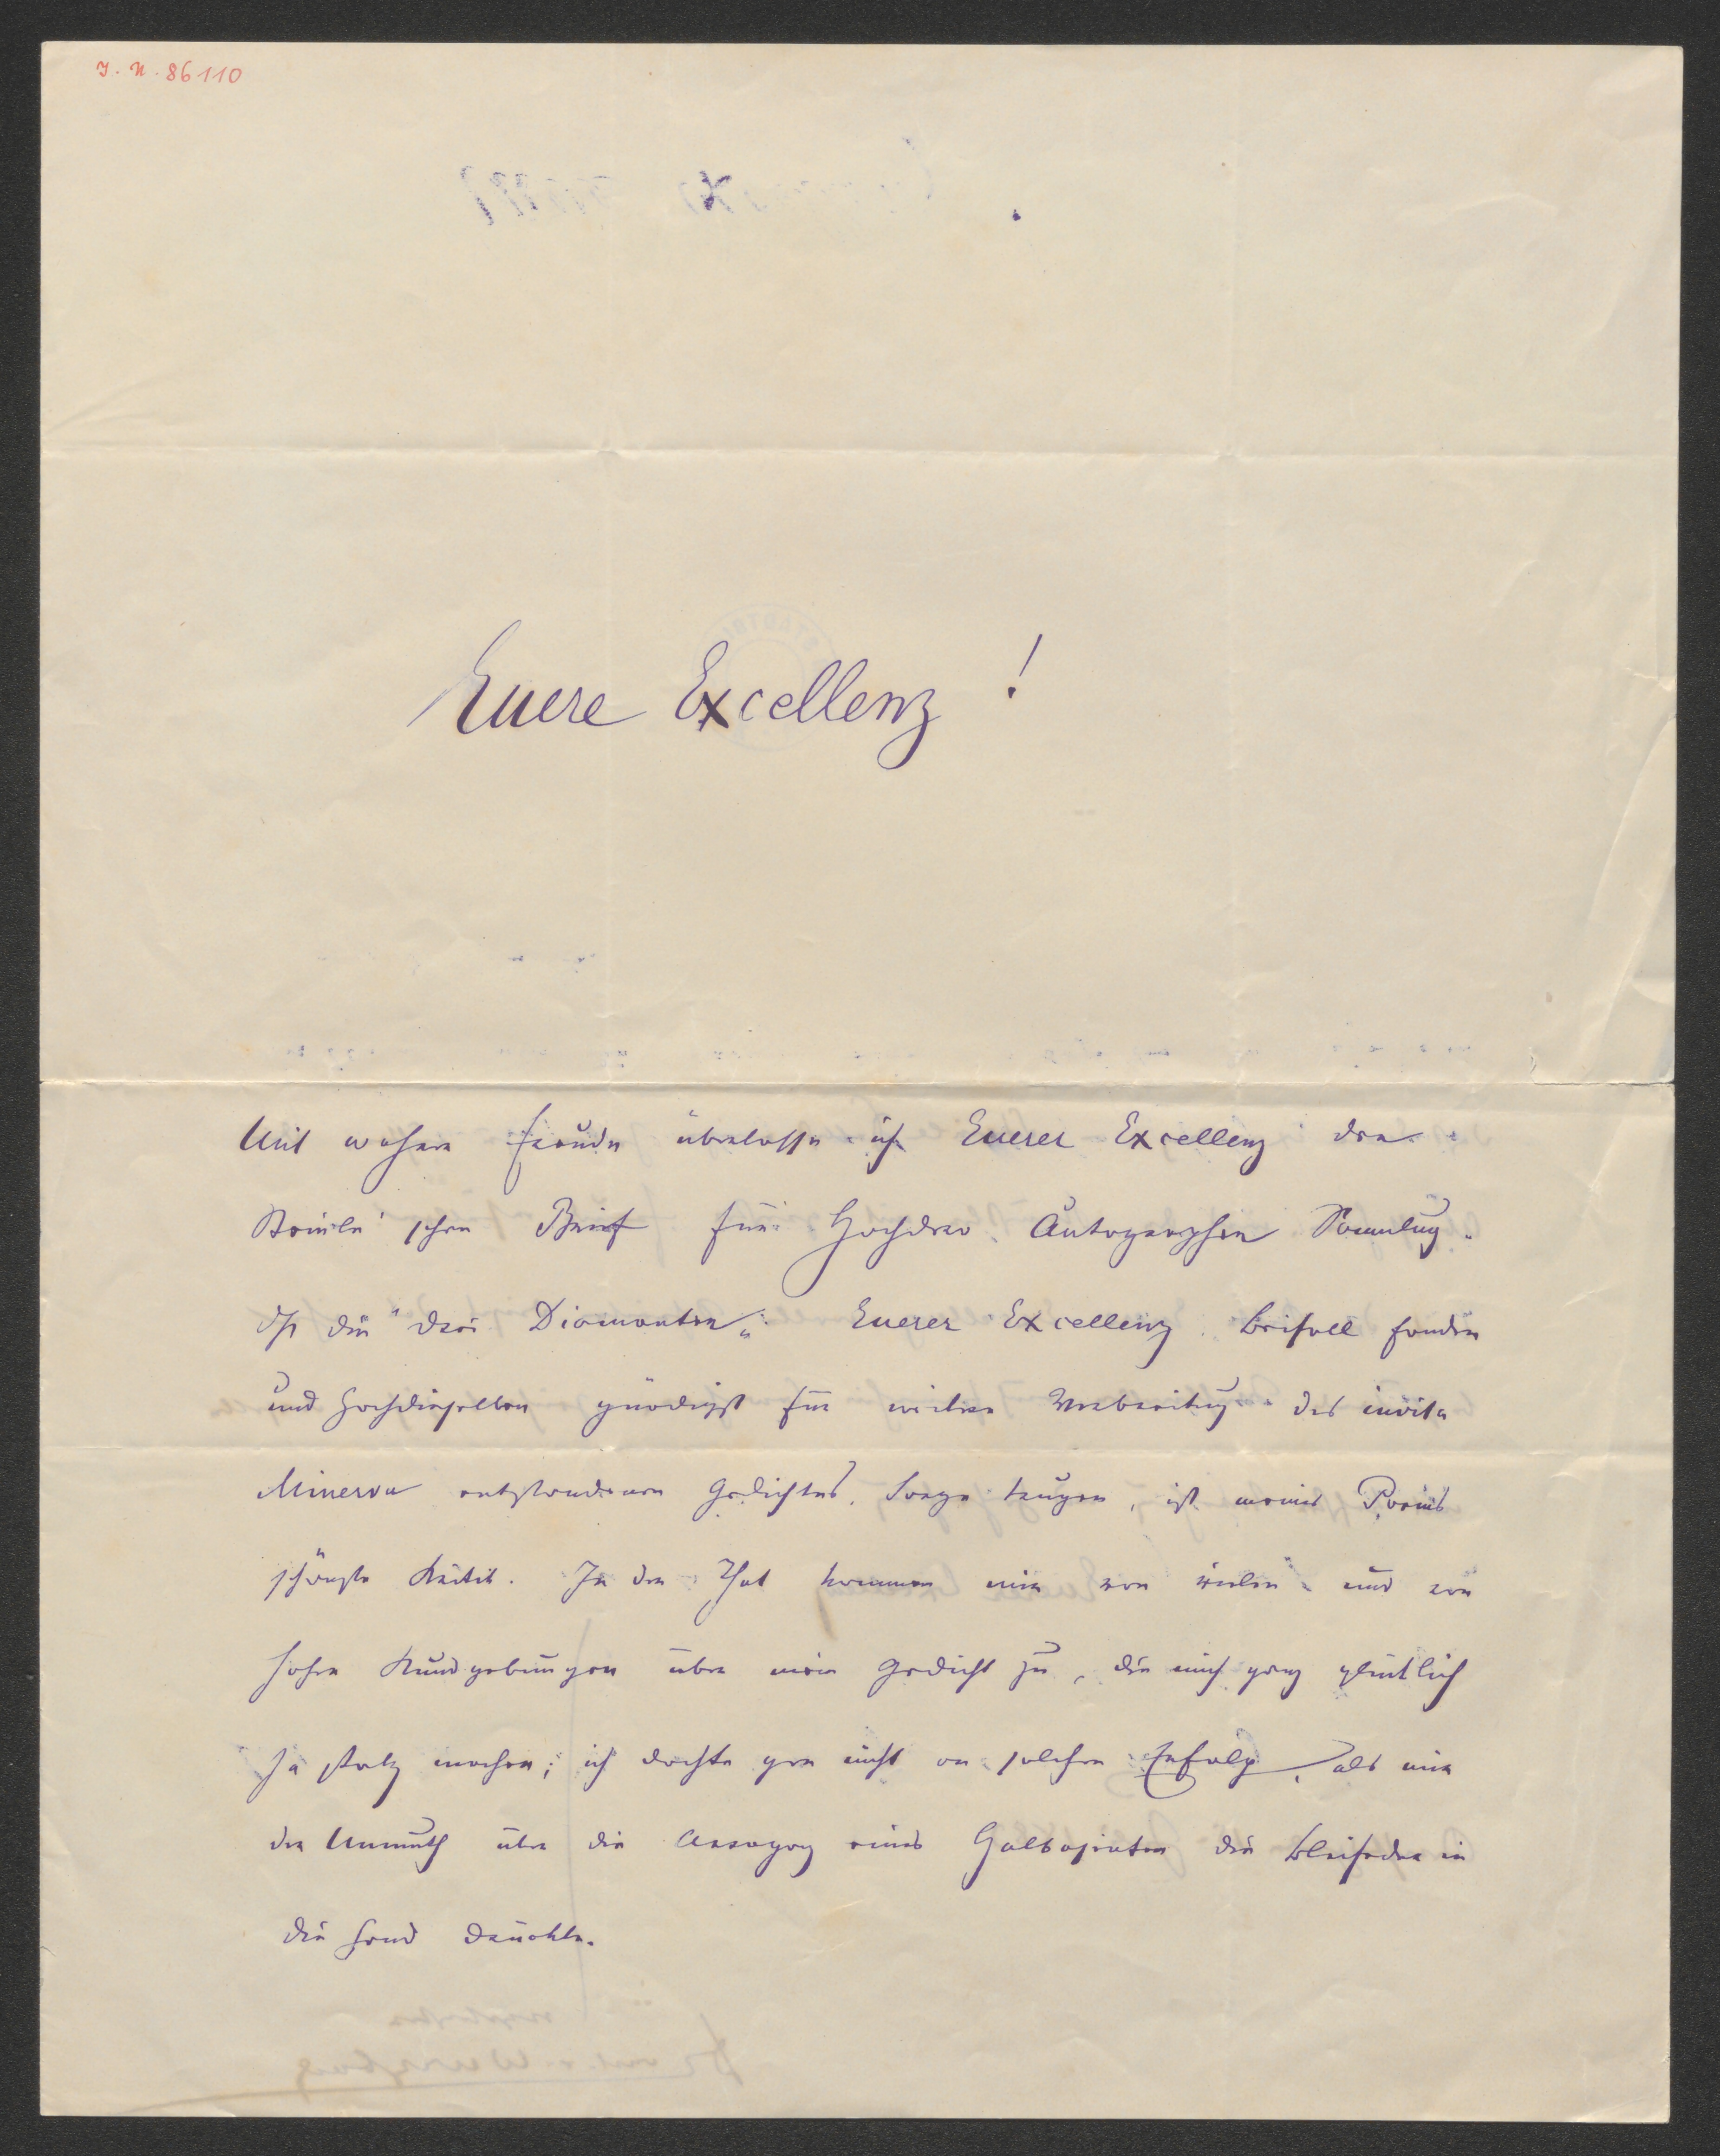 I. N. 86110
Euere Excellenz!
Mit wahrer Freude überlasse ich Euerer Excellenz den
Steinle'schen Brief für Hochdero Autographen Sammlung.
Daß die "drei Diamanten" Euerer Excellenz Beifall fanden
und Hochdieselben gnädigst für weitere Verbreitung des invita
Minerva entstandenen Gedichtes Sorge trugen, ist meines Poems
schönste Kritik. In der That kommen mir von vielen und von
hohen Kundgebungen über mein Gedicht zu, die mich ganz glücklich
ja stolz machen; ich dachte gar nicht an solchen Erfolg, als mir
der Unmuth über die Arroganz eines Halbasiaten die Bleifeder in
die Hand drückte.